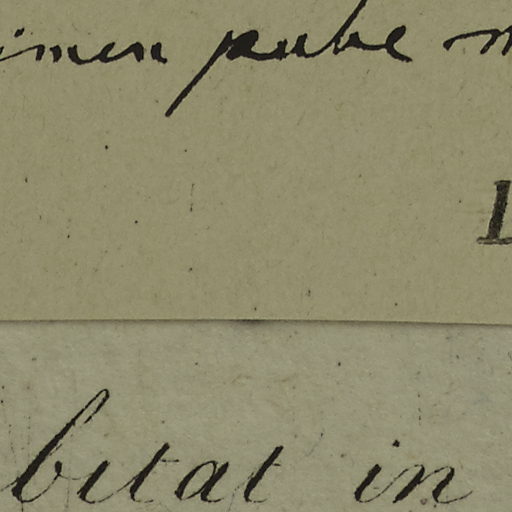 imen pube m
L
bitat in